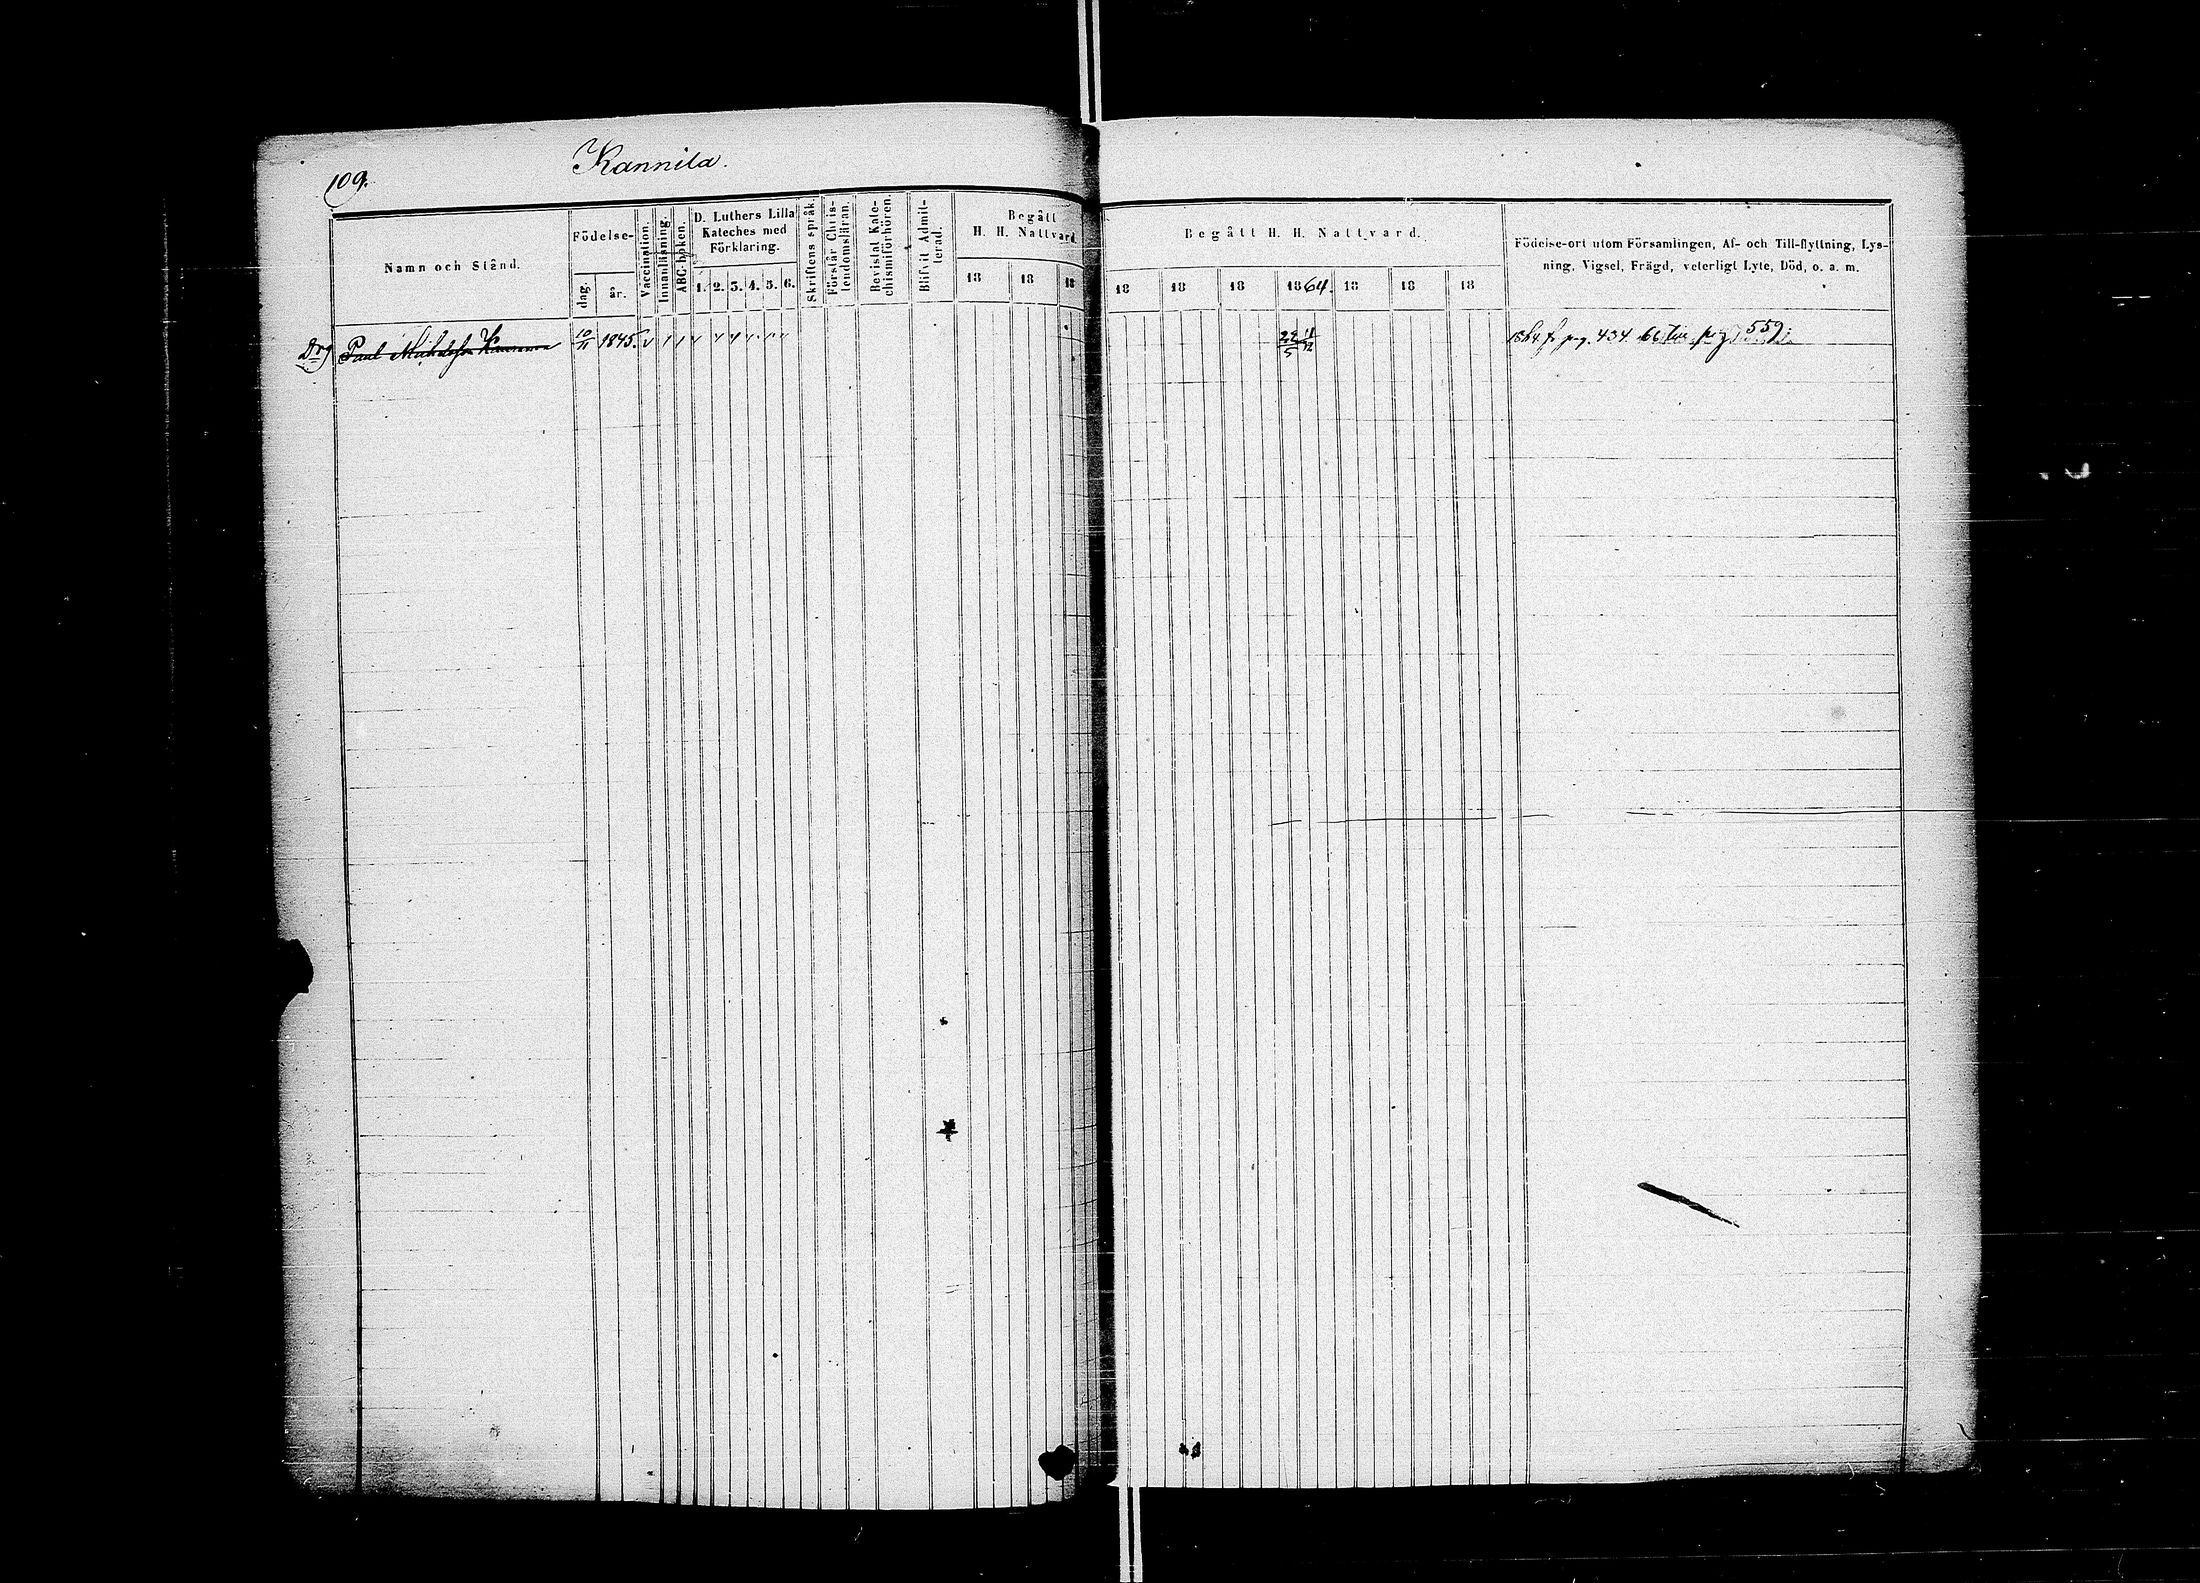 109.
Kannila.
Namn och Stånd.
Födelse-
dag.
år.
Vaccination.
Innanläsning.
ABC-boken.
D. Luthers Lilla
Kateches med
Förklaring.
1. 2. 3. 4. 5. 6.
Skriftens språk.
Förstår Chris-
tendomsläran.
Bevistat Kate-
chismiförhören.
Blifvit Admit-
terad.
Begått
H. H. Nattvard.
18 18 18
Begått H. H. Nattvard.
18 18 18 1864. 18 18 18
Födelse-ort utom Församlingen, Af- och Till-flyttning, Lys-
ning, Vigsel, Frägd, veterligt Lyte, Död, o. a. m.
Drg Paul Michelsson 10/11 1845. 22/5 11/12 1864 fr pag. 434. 66 till pag 559.